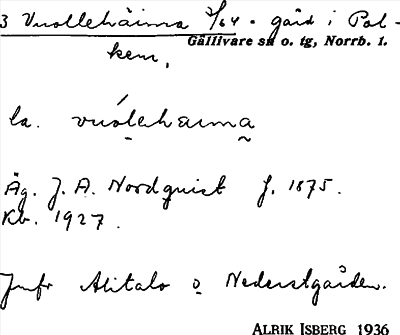 3 Vuollehäima 3/64. gård i Pol-
Gällivare sn o. tg, Norrb. l.
kem,
la. vuolehaima
Äg. J. A. Nordquist f. 1875.
Kb. 1927.
Jmfr Alitalo o Nederstgården.
ALRIK ISBERG 1936